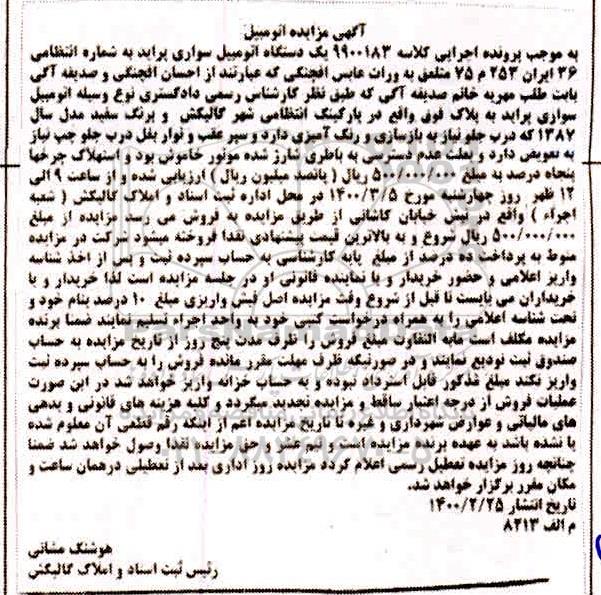 آگهی مزایده اتومبیل
به موجب پرونده اجرایی کلاسه ۹۹۰۰۱۸۳ یک دستگاه اتومبیل سواری پراید به شماره انتظامی
۳۶ ایران ۲۵۳ م ۷۵ متعلق به وراث عابس افچنگی که عبارتند از احسان افچنگی و صدیقه آگی
بابت طلب مهریه خانم صدیقه آگی که طبق نظر کارشناس رسمی دادگستری نوع وسیله اتومبیل
سواری پراید به پلاک فوق واقع در پارکینگ انتظامی شهر گالیکش و برنگ سفید مدل سال
۱۳۸۷ که درب جلو نیاز به بازسازی و رنگ آمیزی دارد و سپر عقب و نوار بغل درب جلو چپ نیاز
به تعویض دارد و بعلت عدم دسترسی به باطری شارژ شده موتور خاموش بود و استهلاک چرخها
پنجاه درصد به مبلغ ۵۰۰/۰۰۰/۰۰۰ ریال ( پانصد میلیون ریال ) ارزیابی شده و از ساعت ۹ الی
۱۲ ظهر روز چهارشنبه مورخ ۱۴۰۰/۳/۵ در محل اداره ثبت اسناد و املاک گالیکش ( شعبه
اجراء ) واقع در نبش خیابان کاشانی از طریق مزایده به فروش می رسد مزایده از مبلغ
۵۰۰/۰۰۰/۰۰۰ ریال شروع و به بالاترین قیمت پیشنهادی نقدا فروخته میشود شرکت در مزایده
منوط به پرداخت ده درصد از مبلغ پایه کارشناسی به حساب سپرده ثبت و پس از اخذ شناسه
واریز اعلامی و حضور خریدار و یا نماینده قانونی او در جلسه مزایده است لذا خریدار و یا
خریداران می بایست تا قبل از شروع وقت مزایده اصل فیش واریزی مبلغ ۱۰ درصد بنام خود و
تحت شناسه اعلامی را به همراه درخواست کتبی خود به واحد اجراء تسلیم نمایند ضمنا برنده
مزایده مکلف است مابه التفاوت مبلغ فروش را ظرف مدت پنج روز از تاریخ مزایده به حساب
صندوق ثبت تودیع نمایند و در صورتیکه ظرف مهلت مقرر مانده فروش را به حساب سپرده ثبت
واریز نکند مبلغ مذکور قابل استرداد نبوده و به حساب خزانه واریز خواهد شد در این صورت
عملیات فروش از درجه اعتبار ساقط و مزایده تجدید میگردد و کلیه هزینه های قانونی و بدهی
های مالیاتی و عوارض شهرداری و غیره تا تاریخ مزایده اعم از اینکه رقم قطعی آن معلوم شده
یا نشده باشد به عهده برنده مزایده است و نیم عشر و حق مزایده نقدا وصول خواهد شد ضمنا
چنانچه روز مزایده تعطیل رسمی اعلام گردد مزایده روز اداری بعد از تعطیلی درهمان ساعت و
مکان مقرر برگزار خواهد شد.
تاریخ انتشار ۱۴۰۰/۲/۲۵
م الف ۸۲۱۳
هوشنگ مشانی
رئیس ثبت اسناد و املاک گالیکش